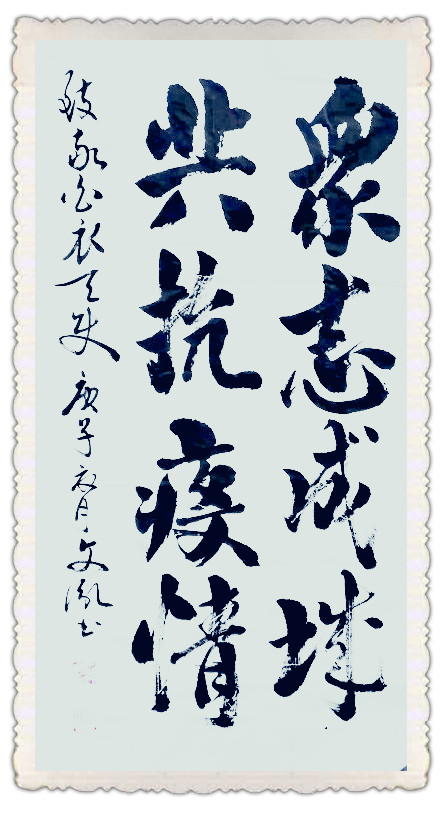 衆志成城
共抗疫情
致敬白衣天使 庚子元月 文胤书